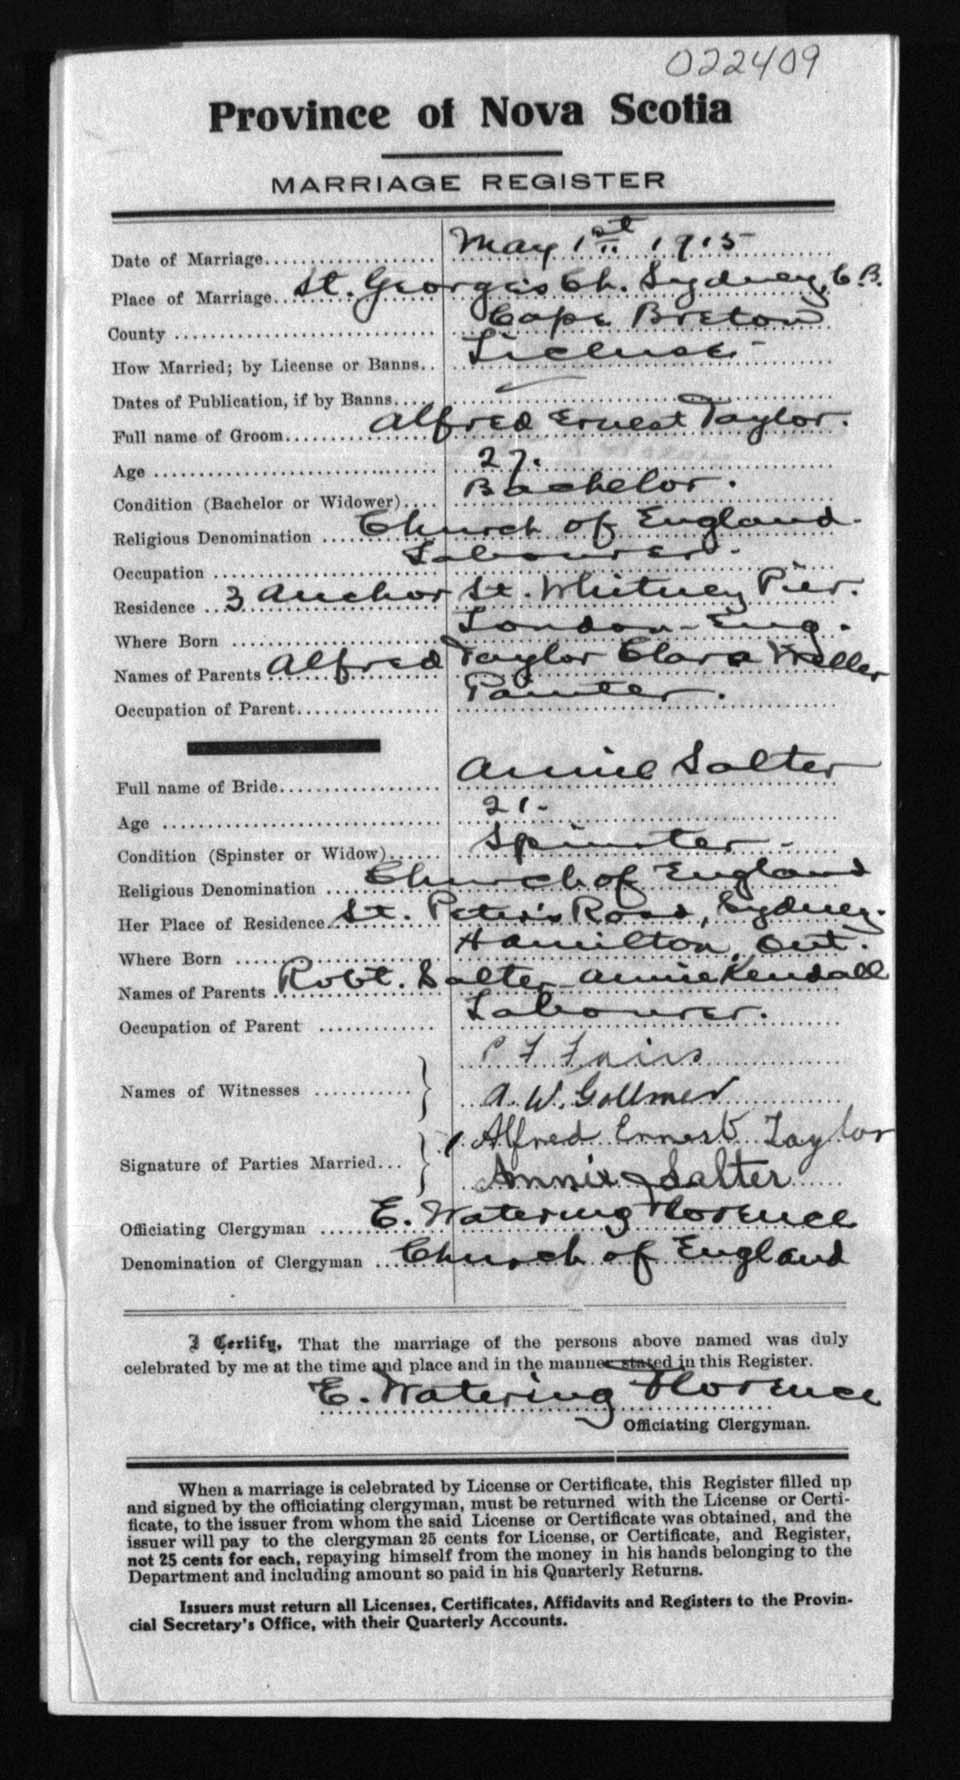 022409
Province of Nova Scotia
MARRIAGE REGISTER
Date of Marriage May 1st 1915
Place of Marriage St. George's Ch. Sydney, C.B.
County Cape Breton
How Married; by License or Banns License
Dates of Publication, if by Banns
Full name of Groom Alfred Ernest Taylor.
Age 27.
Condition (Bachelor or Widower) Bachelor.
Religious Denomination Church of England.
Occupation Labourer.
Residence 3 Anchor St. Whitney Pier.
Where Born London - Eng.
Names of Parents Alfred Taylor Clara Weller
Occupation of Parent Painter.
Full name of Bride Annie Salter
Age 21.
Condition (Spinster or Widow) Spinster
Religious Denomination Church of England
Her Place of Residence St. Peter's Road, Sydney.
Where Born Hamilton, Ont.
Names of Parents Robt. Salter Annie Kendall
Occupation of Parent Labourer.
Names of Witnesses
A. W. Gollmer
Signature of Parties Married Alfred Ernest Taylor
Annie Salter
Officiating Clergyman E. Watering Florence
Denomination of Clergyman Church of England
I Certify, That the marriage of the persons above named was duly
celebrated by me at the time and place and in the manner stated in this Register.
E. Watering Florence
Officiating Clergyman.
When a marriage is celebrated by License or Certificate, this Register filled up
and signed by the officiating clergyman, must be returned with the License or Certi-
ficate, to the issuer from whom the said License or Certificate was obtained, and the
issuer will pay to the clergyman 25 cents for License, or Certificate, and Register,
not 25 cents for each, repaying himself from the money in his hands belonging to the
Department and including amount so paid in his Quarterly Returns.
Issuers must return all Licenses, Certificates, Affidavits and Registers to the Provin-
cial Secretary's Office, with their Quarterly Accounts.